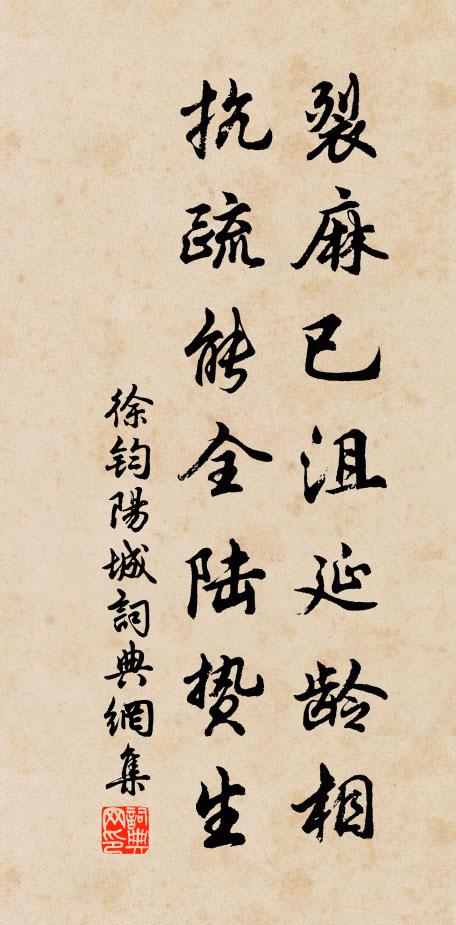 裂麻已沮延龄相
抗疏能全陆贽生
徐钧陽城詞典網集
詞典网印